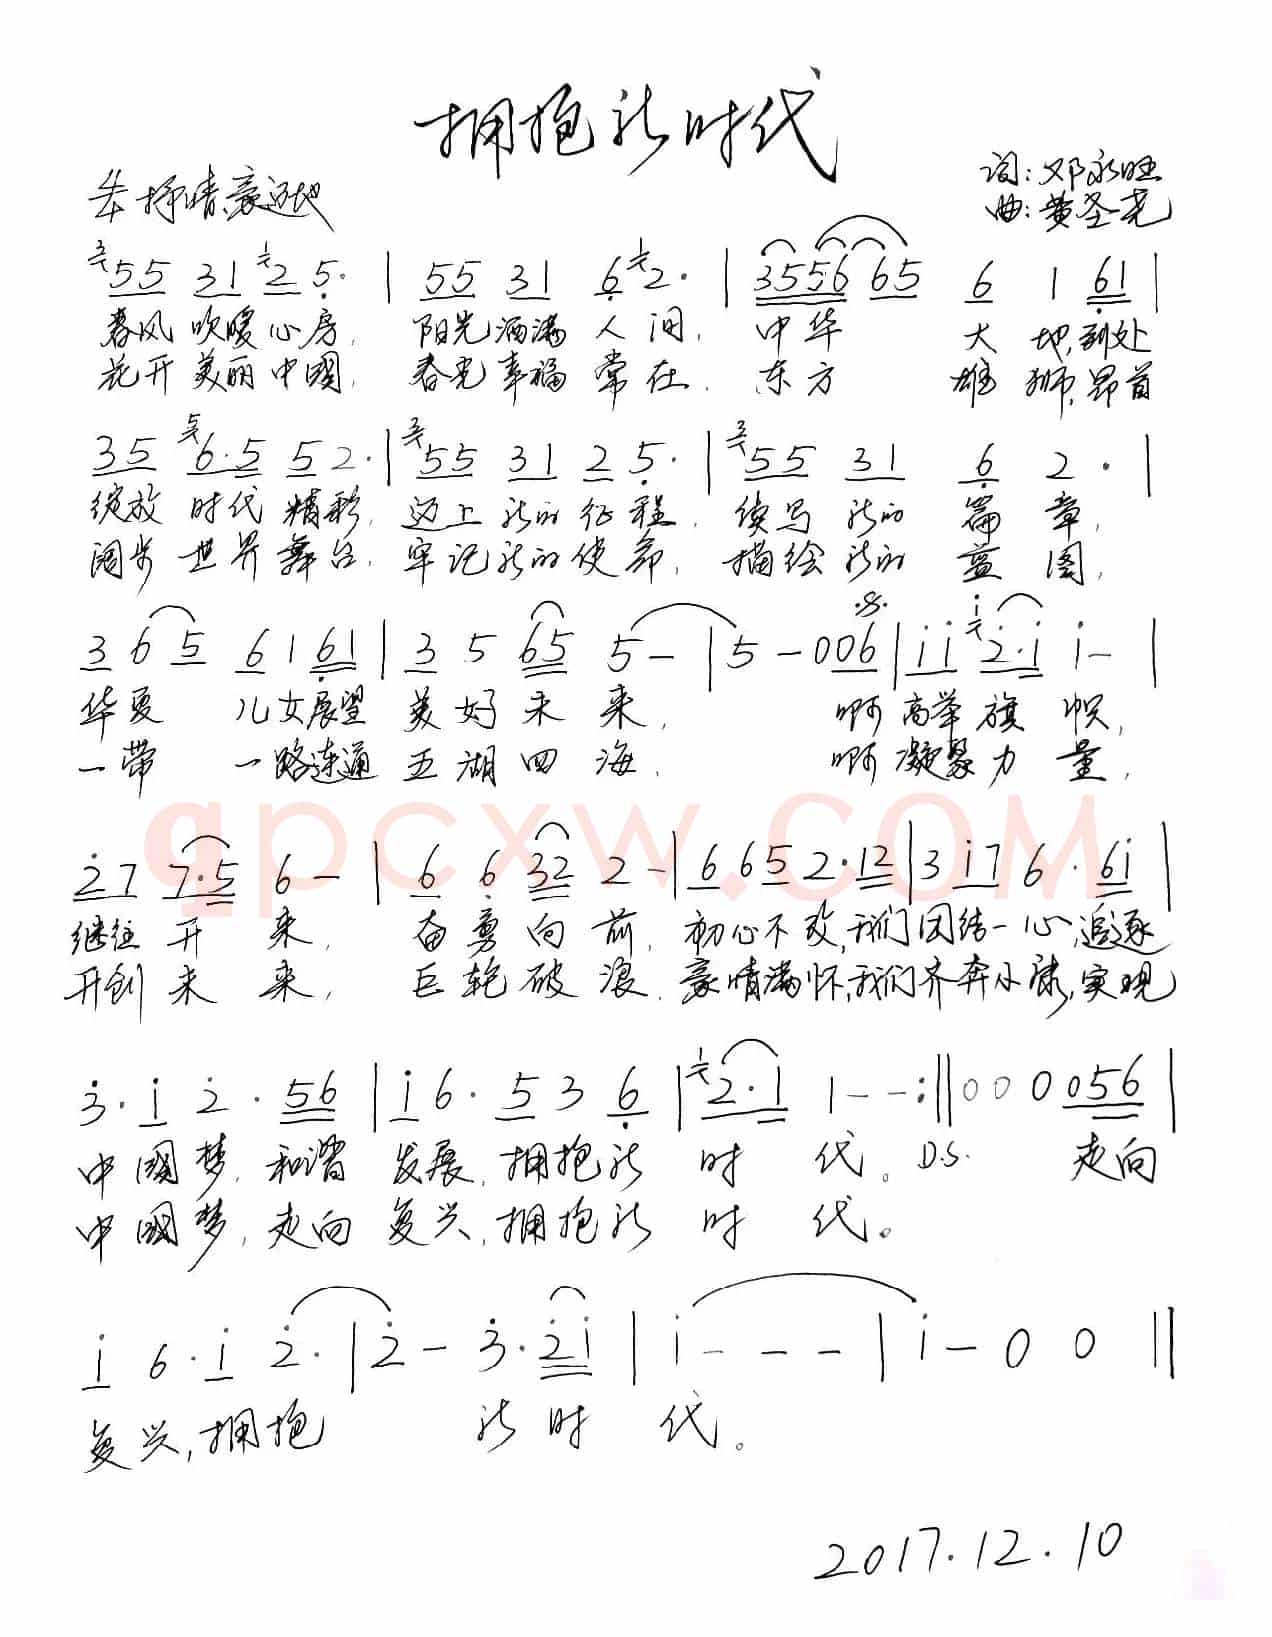 拥抱新时代
词:邓永旺
抒情、豪迈地
曲:黄圣尧
55 31 2 5· | 55 31 6 2· | 3556 65 6 1 61 |
春风 吹暖 心房, 阳光洒满 人间, 中华 大地,到处
花开 美丽 中國, 春光幸福 常在, 东方 雄狮,昂首
35 6·5 5 2· | 55 31 2 5· | 55 31 6 2· |
绽放 时代 精彩, 迈上 新的 征程, 续写 新的 篇章,
阔步 世界 舞台, 牢记新的使命, 描绘新的 蓝图,
3 6 5 6 1 61 | 3 5 65 5 – | 5 – 006 | i i 2·i i – |
华夏 儿女展望 美好未来, 啊高举旗帜,
一带 一路连通 五湖四海, 啊凝聚力量,
qpcxw.COM
27 7·5 6 – | 6 6 32 2 – | 6 6 5 2·12 | 3 i 7 6·6i |
继往开来, 奋勇向前, 初心不改,我们团结一心,追逐
开创未来, 巨轮破浪, 豪情满怀,我们齐奔小康,实现
3·i 2·56 | i 6·5 3 6 | 2·1 1 – – :|| 0 0 0 056 |
中國梦, 和谐 发展, 拥抱新 时 代。 D.S. 走向
中國梦, 走向 复兴, 拥抱新 时 代。
i 6·i 2· | 2 – 3·2i | i – – – | i – 0 0 ||
复兴,拥抱 新时 代。
2017.12.10